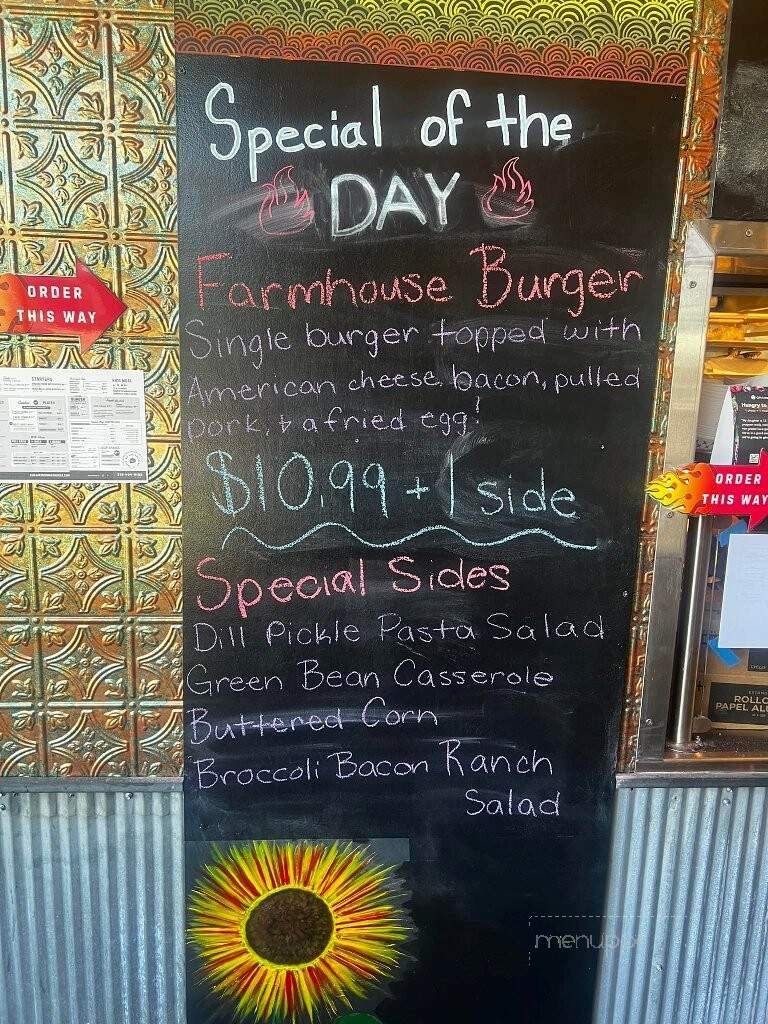 Special of the
DAY
Farmhouse Burger
Single burger topped with
American cheese, bacon, pulled
pork, + a fried egg!
$10.99 + 1 side
Special Sides
Dill Pickle Pasta Salad
Green Bean Casserole
Buttered Corn
Broccoli Bacon Ranch
Salad
ORDER
THIS WAY
STARTERS
ORDER
THIS WAY
Hungry to
PAPEL ALU
menupi